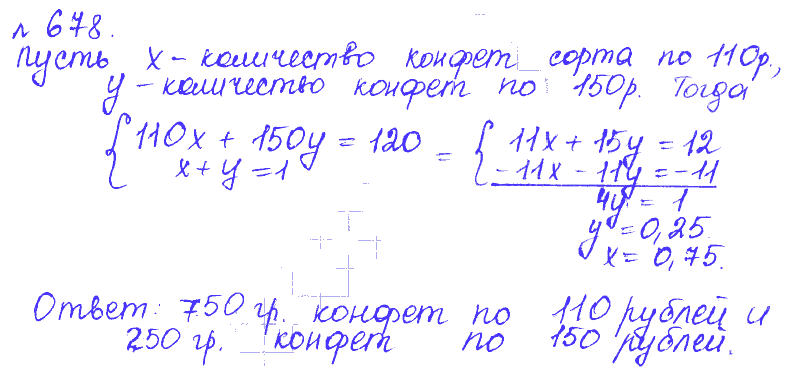 № 678.
Пусть x - количество конфет сорта по 110р.,
y - количество конфет по 150р. Тогда
{110x + 150y = 120 = {11x + 15y = 12
x + y = 1 -11x - 11y = -11
4y = 1
y = 0,25
x = 0,75.
Ответ: 750 гр. конфет по 110 рублей и
250 гр. конфет по 150 рублей.